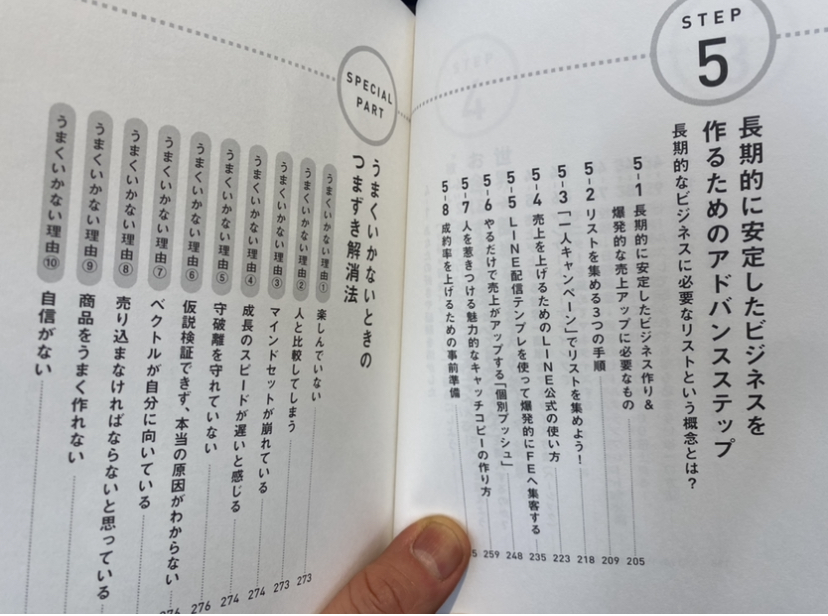 STEP
5
長期的に安定したビジネスを
作るためのアドバンスステップ
長期的なビジネスに必要なリストという概念とは?
5-1 長期的に安定したビジネス作り&
爆発的な売上アップに必要なもの 205
5-2 リストを集める3つの手順 209
5-3 「一人キャンペーン」でリストを集めよう! 218
5-4 売上を上げるためのLINE公式の使い方 223
5-5 LINE配信テンプレを使って爆発的にFEへ集客する 235
5-6 やるだけで売上がアップする「個別プッシュ」 248
5-7 人を惹きつける魅力的なキャッチコピーの作り方 259
5-8 成約率を上げるための事前準備
SPECIAL
PART
うまくいかないときの
つまずき解消法
うまくいかない理由① 楽しんでいない 273
うまくいかない理由② 人と比較してしまう 273
うまくいかない理由③ マインドセットが崩れている 274
うまくいかない理由④ 成長のスピードが遅いと感じる 274
うまくいかない理由⑤ 守破離を守れていない 276
うまくいかない理由⑥ 仮説検証できず、本当の原因がわからない
うまくいかない理由⑦ ベクトルが自分に向いている
うまくいかない理由⑧ 売り込まなければならないと思っている
うまくいかない理由⑨ 商品をうまく作れない
うまくいかない理由⑩ 自信がない